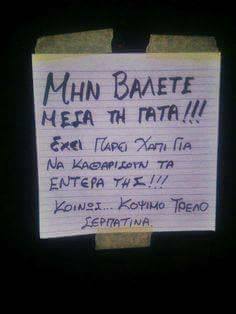 ΜΗΝ ΒΑΛΕΤΕ
ΜΕΣΑ ΤΗ ΓΑΤΑ!!!
ΕΧΕΙ ΠΑΡΕΙ ΧΑΠΙ ΓΙΑ
ΝΑ ΚΑΘΑΡΙΣΟΥΝ ΤΑ
ΕΝΤΕΡΑ ΤΗΣ!!!
ΚΟΙΝΩΣ... ΚΟΨΙΜΟ ΤΡΕΛΟ
ΣΕΡΠΑΤΙΝΑ.